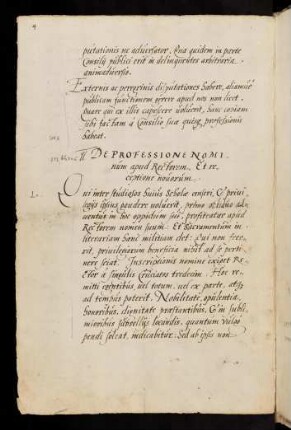 putationis ne adversator. Qua quidem in parte
Consilij publici erit in delinquentes arbitraria
animadversio.
Externis ac peregrinis disputationes habere, aliamve
publicam functionem gerere apud nos non licet,
quare qui ex illis capessere voluerit, hanc copiam
sibi factam a Consilio suae quisque professionis
habeat.
II DE PROFESSIONE NOMI
num apud Rectorem. Et re,
ceptione novorum.
1. Qui inter studiosos huius Scholae censeri, &
legibus gaudere voluerit, primo
in hoc oppidum sui, profiteatur apud
Rectorem nomen suum. Et Sacramentum in
literariam hanc militiam det: Qui non fece,
rit, privilegiorum beneficia nihil ad se perti,
nere sciat. Inscriptionis nomine exiget Re,
ctor a singulis tredecim. Hos re,
mitti egentibus vel totum, vel ex parte, atque
ad tempus poterit. Nobilitate, opulentia,
honoribus, dignitate praestantibus,
mioribus subsellijs locandis, quantum
pendi soleat, indicabitur. Sed ab ipsis non